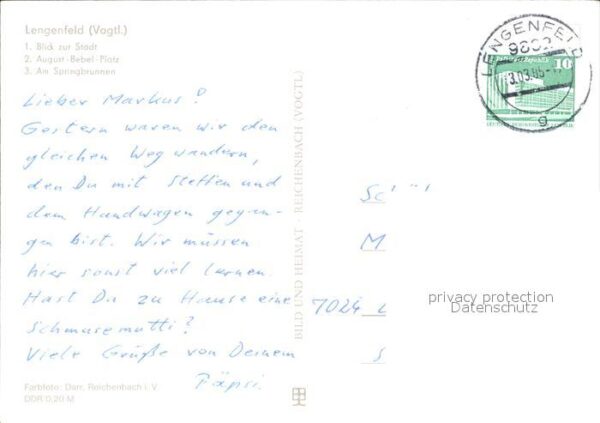 Lengenfeld (Vogtl.)
1. Blick zur Stadt
2. August-Bebel-Platz
3. Am Springbrunnen
Lieber Markus!
Gestern waren wir den
gleichen Weg wandern,
den Du mit Steffen und
dem Handwagen gegan-
gen bist. Wir müssen
hier sonst viel lernen.
Hast Du zu Hause eine
Schmusemutti?
Viele Grüße von Deinem
Päpsi.
Farbfoto: Darr, Reichenbach i. V.
DDR 0,20 M
BILD UND HEIMAT REICHENBACH (VOGTL)
LENGENFELD
9802
10
g
M
7024 L
S
privacy protection
Datenschutz